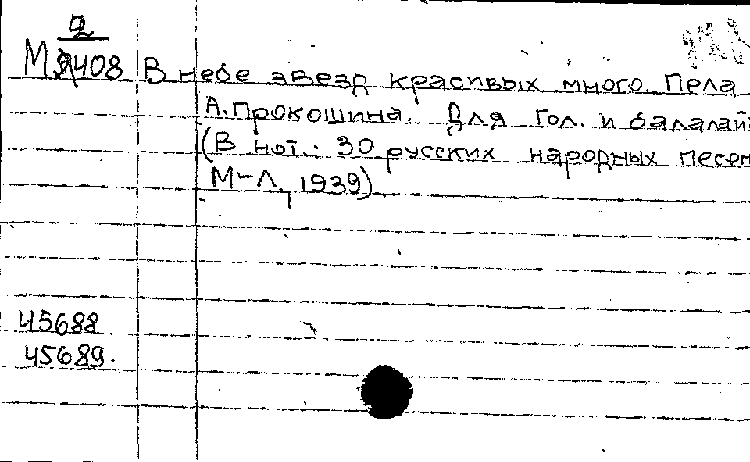 2
М408 В небе звезд красивых много. Пела
А. Прокошина. Для гол. и балалай
(В нот.: 30 русских народных песен
М-Л, 1939)
45688
45689.